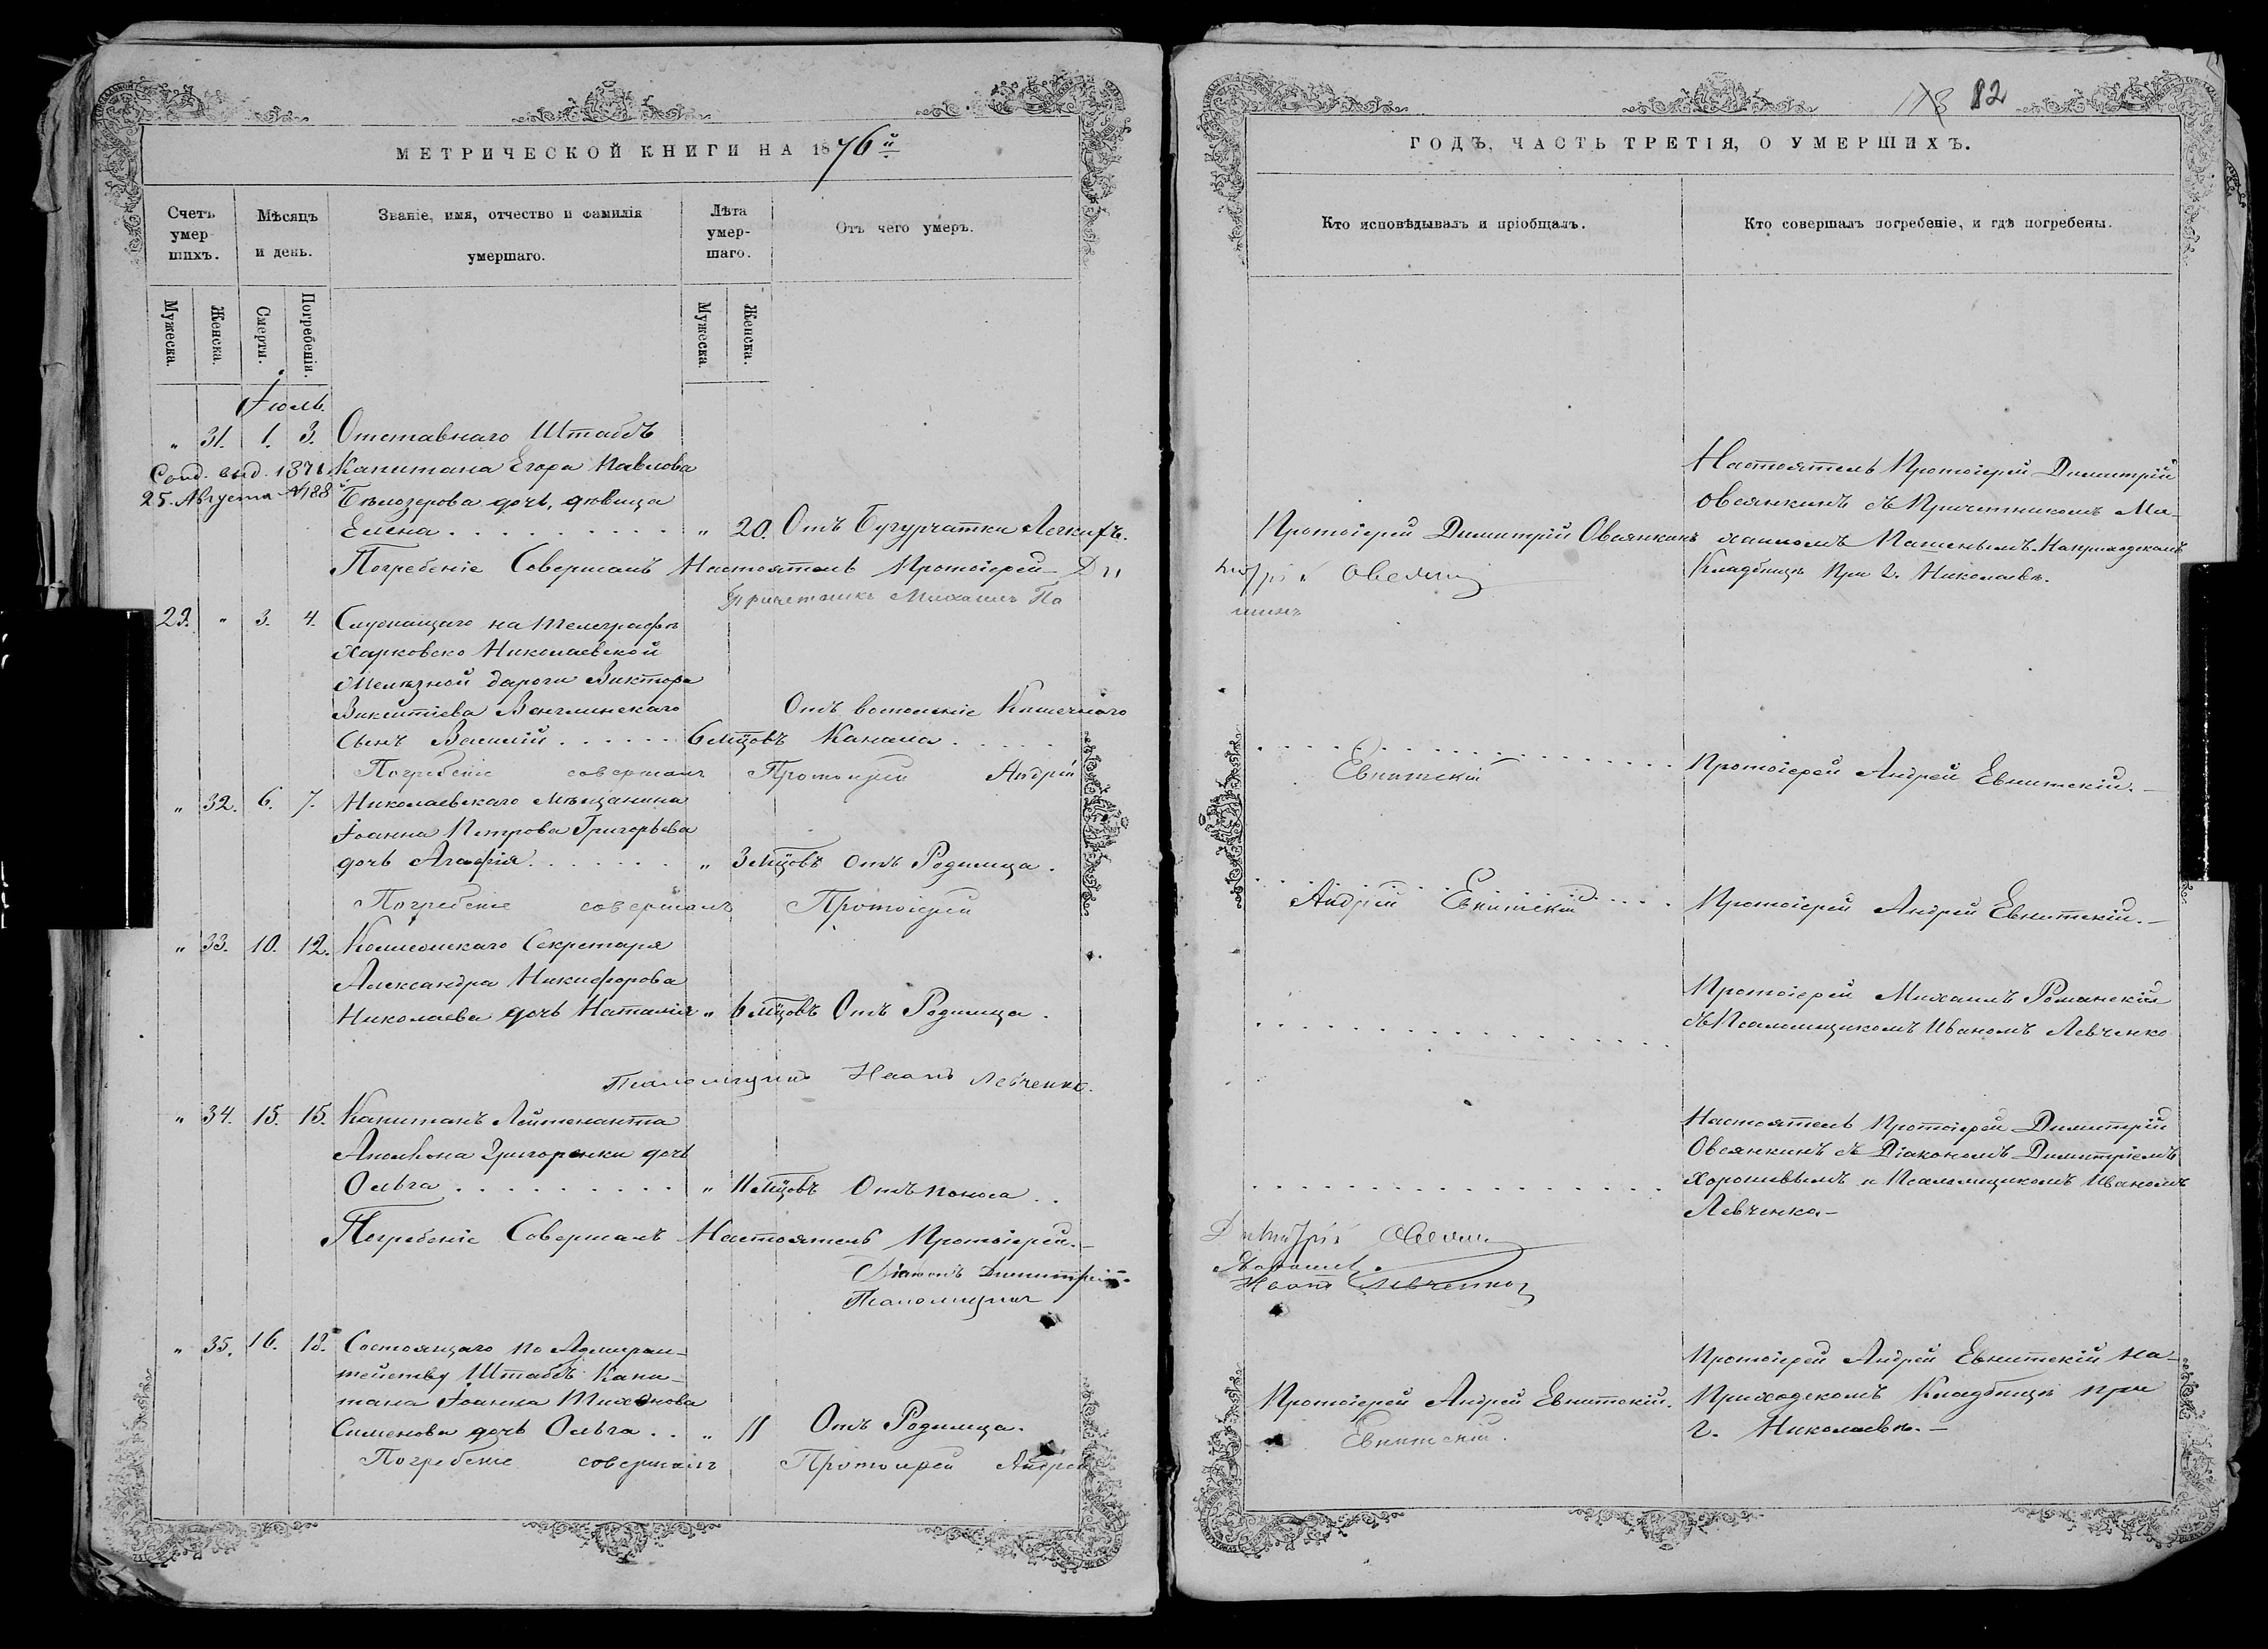 МЕТРИЧЕСКОЙ КНИГИ НА 1876й
Счетъ умер шихъ.
Мѣсяцъ и день.
Званіе, имя, отчество и фамилія умершаго.
Лѣта умер- шаго.
Отъ чего умеръ.
Мужеска.
Женска.
Смерти.
Погребенія.
Мужеска.
Женска.
Іюль.
„ 31. 1. 3. Отставнаго Штабсъ
Капитана Егора Павлова
25. Августа №188
Бѣлозерова дочь, дѣвица
Елена . . . . . . . . . „ 20. Отъ Бугурчатки Легкихъ.
Погребеніе Совершалъ Настоятель Протоіерей
Причетникъ Михаилъ
23. „ 3. 4. Служащаго на Телеграфѣ
Харковско Николаевской
Желѣзной дороги Виктора
Викентіева Венглинскаго Отъ воспоменіе Кишечнаго
Сынъ Василій . . . . . . 6 мцовъ Канала . . . . .
Погребеніе совершалъ Протоиерей Андрей
„ 32. 6. 7. Николаевскаго Мѣщанина
Іоанна Петрова Григорьева
дочь Агафія . . . . . . . „ 3 мцовъ Отъ Родимца.
Погребеніе совершалъ Протоіерей
„ 33. 10. 12. Коллежскаго Секретаря
Александра Никифорова
Николаева дочь Наталія „ 6 мцовъ Отъ Родимца.
Псаломщикъ Иванъ Левченко.
„ 34. 15. 15. Капитанъ Лейтенанта
Аполона Григоренки дочь
Ольга . . . . . . . . . . „ 11 мцовъ Отъ поноса . .
Погребеніе Совершалъ Настоятель Протоіерей.
Діаконъ Димитрій
Псаломщикъ
„ 35. 16. 18. Состоящаго по Адмирал-
тейству Штабсъ Капи-
тана Іоанна Тихонова
Сименова дочь Ольга . . „ 11 Отъ Родимца.
Погребеніе совершалъ Протоіерей Андрей
118 82
ГОДЪ, ЧАСТЬ ТРЕТІЯ, О УМЕРШИХЪ.
Кто исповѣдывалъ и пріобщалъ.
Кто совершалъ погребеніе, и гдѣ погребены.
Настоятель Протоіерей Димитрій
Овсянкинъ съ Причетникомъ Ми-
Протоіерей Димитрій Овсянкинъ
хаиломъ На приходскомъ
Кладбищѣ при г. Николаевѣ.
Евнитскій
Протоіерей Андрей Евнитскій.
Андрей Евнитскій
Протоіерей Андрей Евнитскій.
Протоіерей Михаилъ Романскій
съ Псаломщикомъ Иваномъ Левченко
Настоятель Протоіерей Димитрій
Овсянкинъ съ Діакономъ Димитріемъ
Хорошевымъ и Псаломщикомъ Иваномъ
Левченко.
Иванъ Левченко
Протоіерей Андрей Евнитскій на
Протоіерей Андрей Евнитскій.
Приходскомъ Кладбищѣ при
г. Николаевѣ.
Евнитскій.